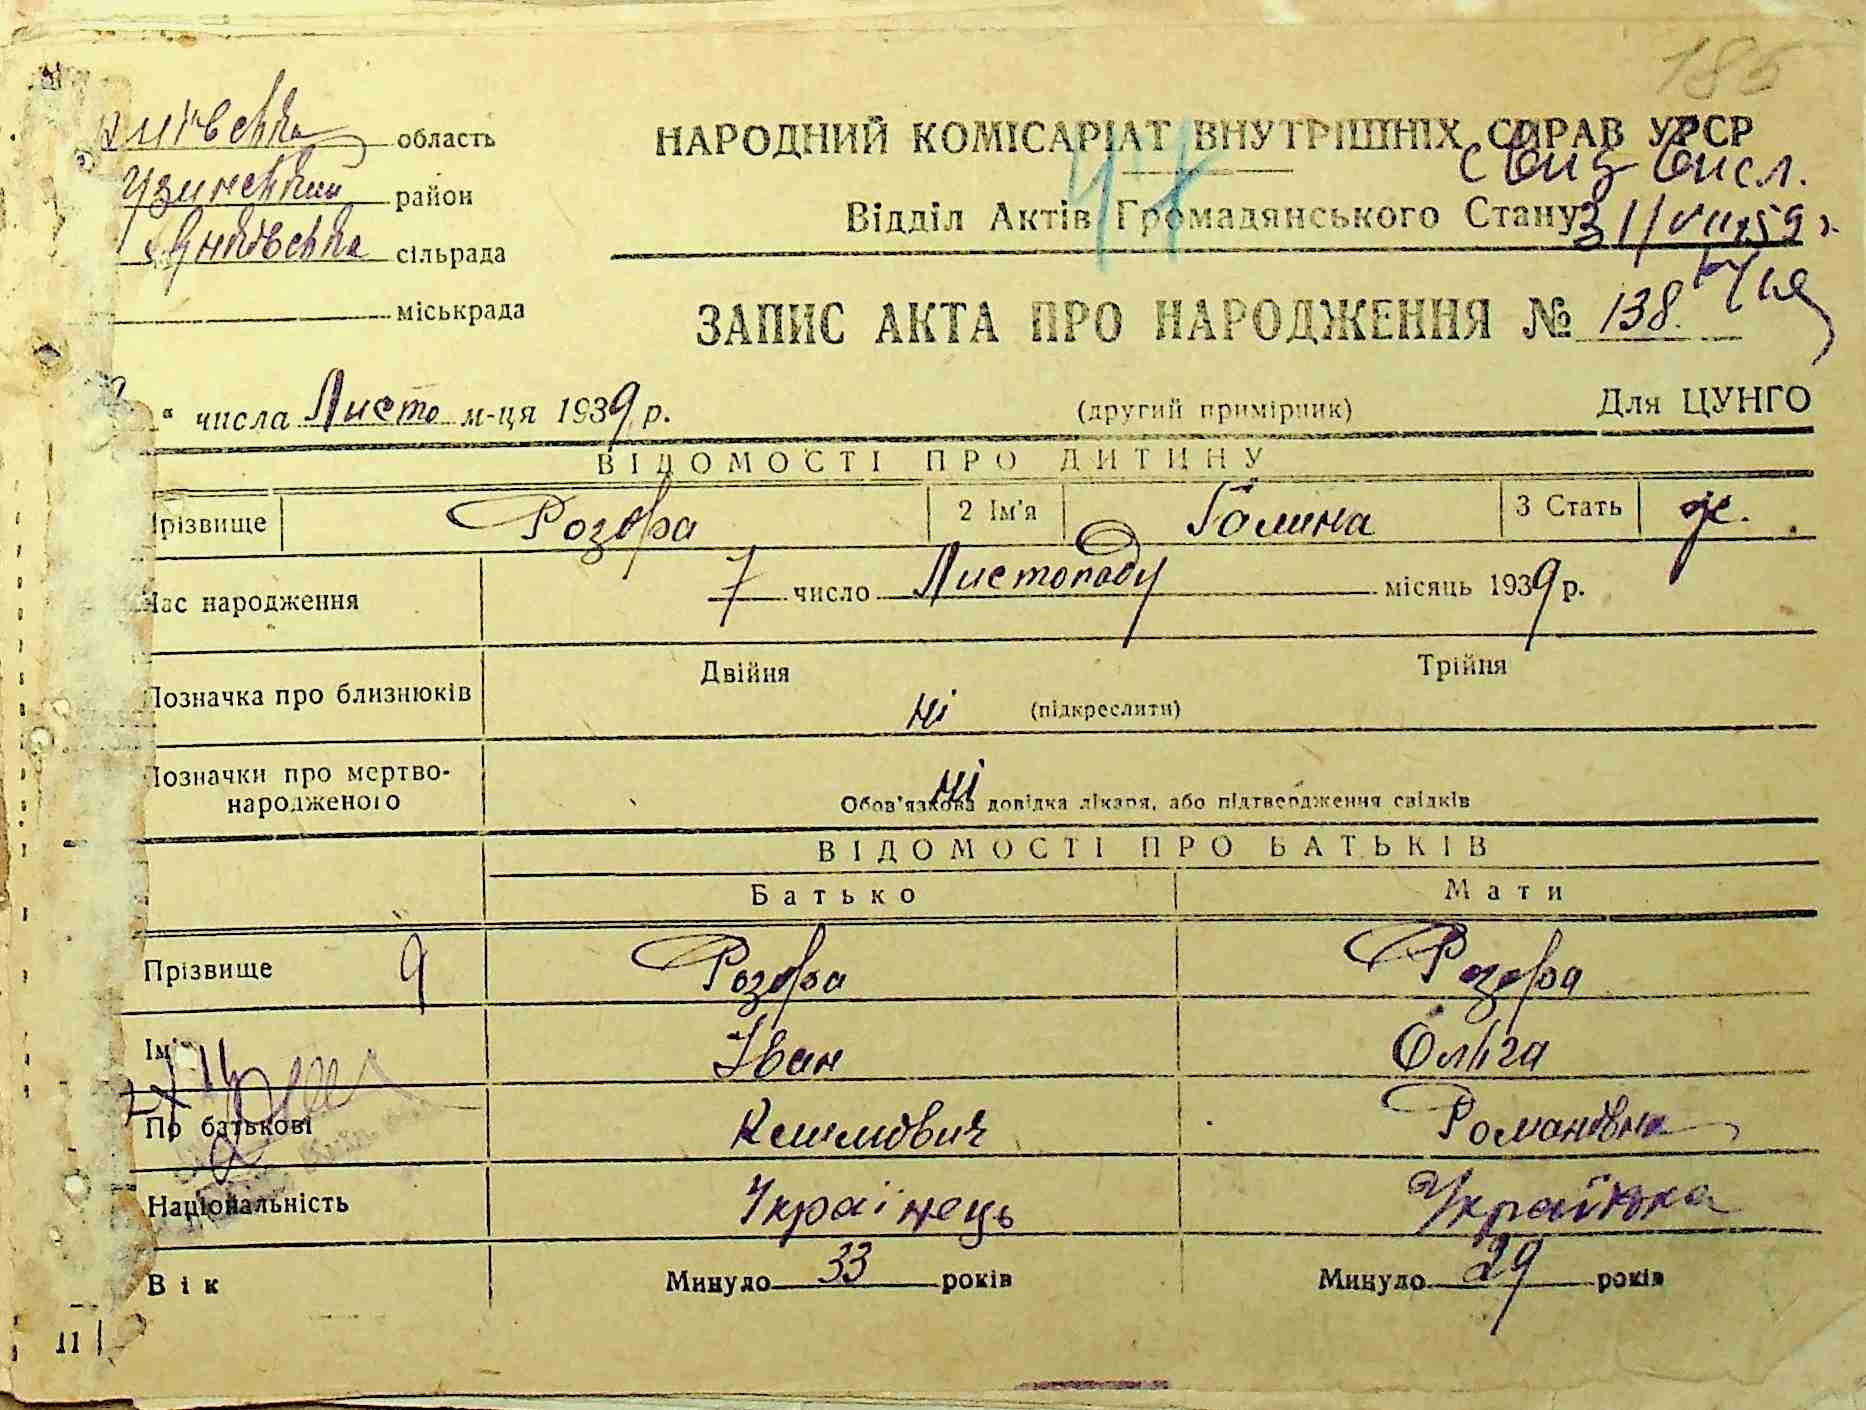 185
Київська область
НАРОДНИЙ КОМІСАРІАТ ВНУТРІШНІХ СПРАВ УРСР
Узинський район
Відділ Актів Громадянського Стану
31/VII 59 р.
сільрада
міськрада
ЗАПИС АКТА ПРО НАРОДЖЕННЯ № 138
" числа Листо м-ця 1939 р.
(другий примірник)
Для ЦУНГО
ВІДОМОСТІ ПРО ДИТИНУ
різвище Розора 2 Ім'я Галина 3 Стать ж.
Час народження 7 число Листопаду місяць 1939 р.
Двійня Трійня
Позначка про близнюків ні (підкреслити)
Позначки про мертво-
народженого ні
Обов'язкова довідка лікаря, або підтвердження свідків
ВІДОМОСТІ ПРО БАТЬКІВ
Батько Мати
Прізвище 9 Розора Розора
Ім'я Іван Ольга
По батькові Климович Романівна
Національність Українець Українка
Вік Минуло 33 років Минуло 29 років
11